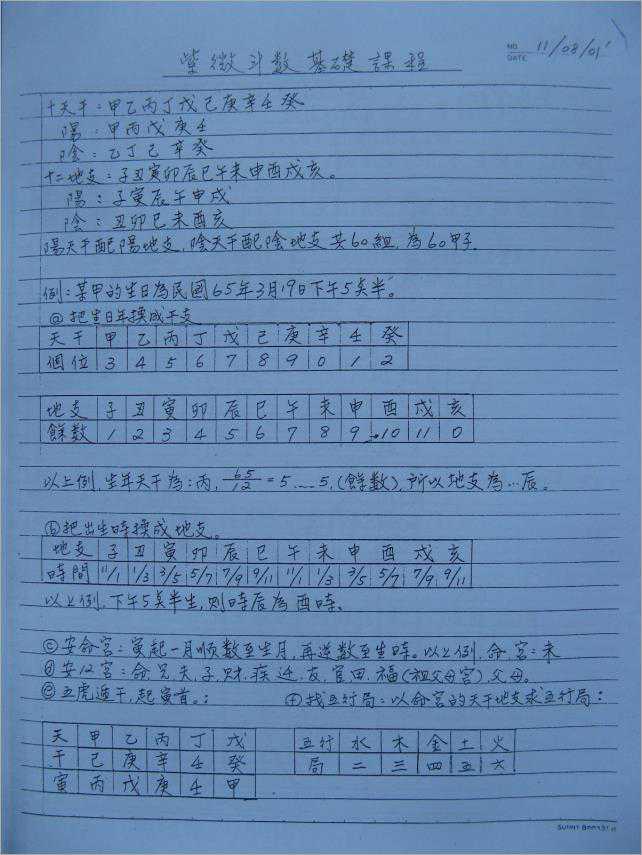 紫微斗数基礎課程
NO.
DATE 11/08/01'
十天干:甲乙丙丁戊己庚辛壬癸
陽:甲丙戊庚壬
陰:乙丁己辛癸
十二地支:子丑寅卯辰巳午未申酉戌亥。
陽:子寅辰午申戌
陰:丑卯巳未酉亥
陽天干配陽地支,陰天干配陰地支共60組,為60甲子.
例:某甲的生日為民國65年3月19日下午5点半。
ⓐ把生日年換成干支
天干 甲 乙 丙 丁 戊 己 庚 辛 壬 癸
個位 3 4 5 6 7 8 9 0 1 2
地支 子 丑 寅 卯 辰 巳 午 未 申 酉 戌 亥
餘数 1 2 3 4 5 6 7 8 9 10 11 0
以上例,生年天干為:丙, 65/12 = 5……5,(餘数),所以地支為…辰。
ⓑ把出生時換成地支。
地支 子 丑 寅 卯 辰 巳 午 未 申 酉 戌 亥
時間 11/1 1/3 3/5 5/7 7/9 9/11 11/1 1/3 3/5 5/7 7/9 9/11
以上例,下午5点半生,則時辰為酉時.
ⓒ安命宮:寅起一月順数至生月,再逆数至生時。以上例,命宮:未
ⓓ安12宮:命.兄.夫.子.財.疾.迁.友.官.田.福(祖父母宮)父母.
ⓔ五虎遁干,起寅首。: ⓕ找五行局:以命宮的天干地支求五行局:
天 甲 乙 丙 丁 戊
干 己 庚 辛 壬 癸
寅 丙 戊 庚 壬 甲
五行 水 木 金 土 火
局 二 三 四 五 六